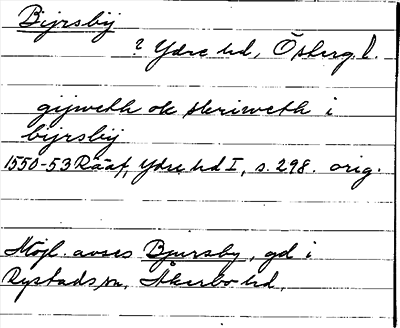 Bijrsbij
? Ydre hd, Östergl.
gijweth ok skriweth i
bijrsbij
1550-53 Rääf, Ydre hd I, s. 298. orig.
Möjl. avses Bjursby, gd i
Rystads sn, Åkerbo hd.